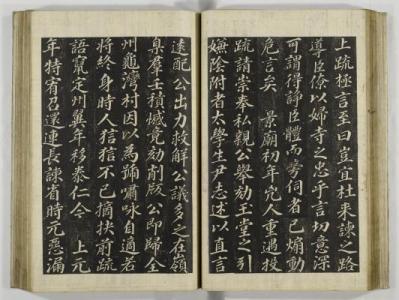 上疏極言至曰豈宜杜來諫之路
導臣僚以婦寺之忠乎言切意深
可謂得諍臣體而旁伺者已煽動
危言矣　景廟初年兇人重遇投
疏請崇奉私親公擧劾王堂之引
嫌陰附者太學生尹志述以直言
遠配公出力救解公議多之在嶺
臬羣壬積憾竟劾削版公卽歸全
州龜灣村因以爲號嘯咏自適若
將終身時人狺狺不已摘抉前疏
語竄定州朞年移泰仁今　上元
年特宥召還運長諫省時元惡漏